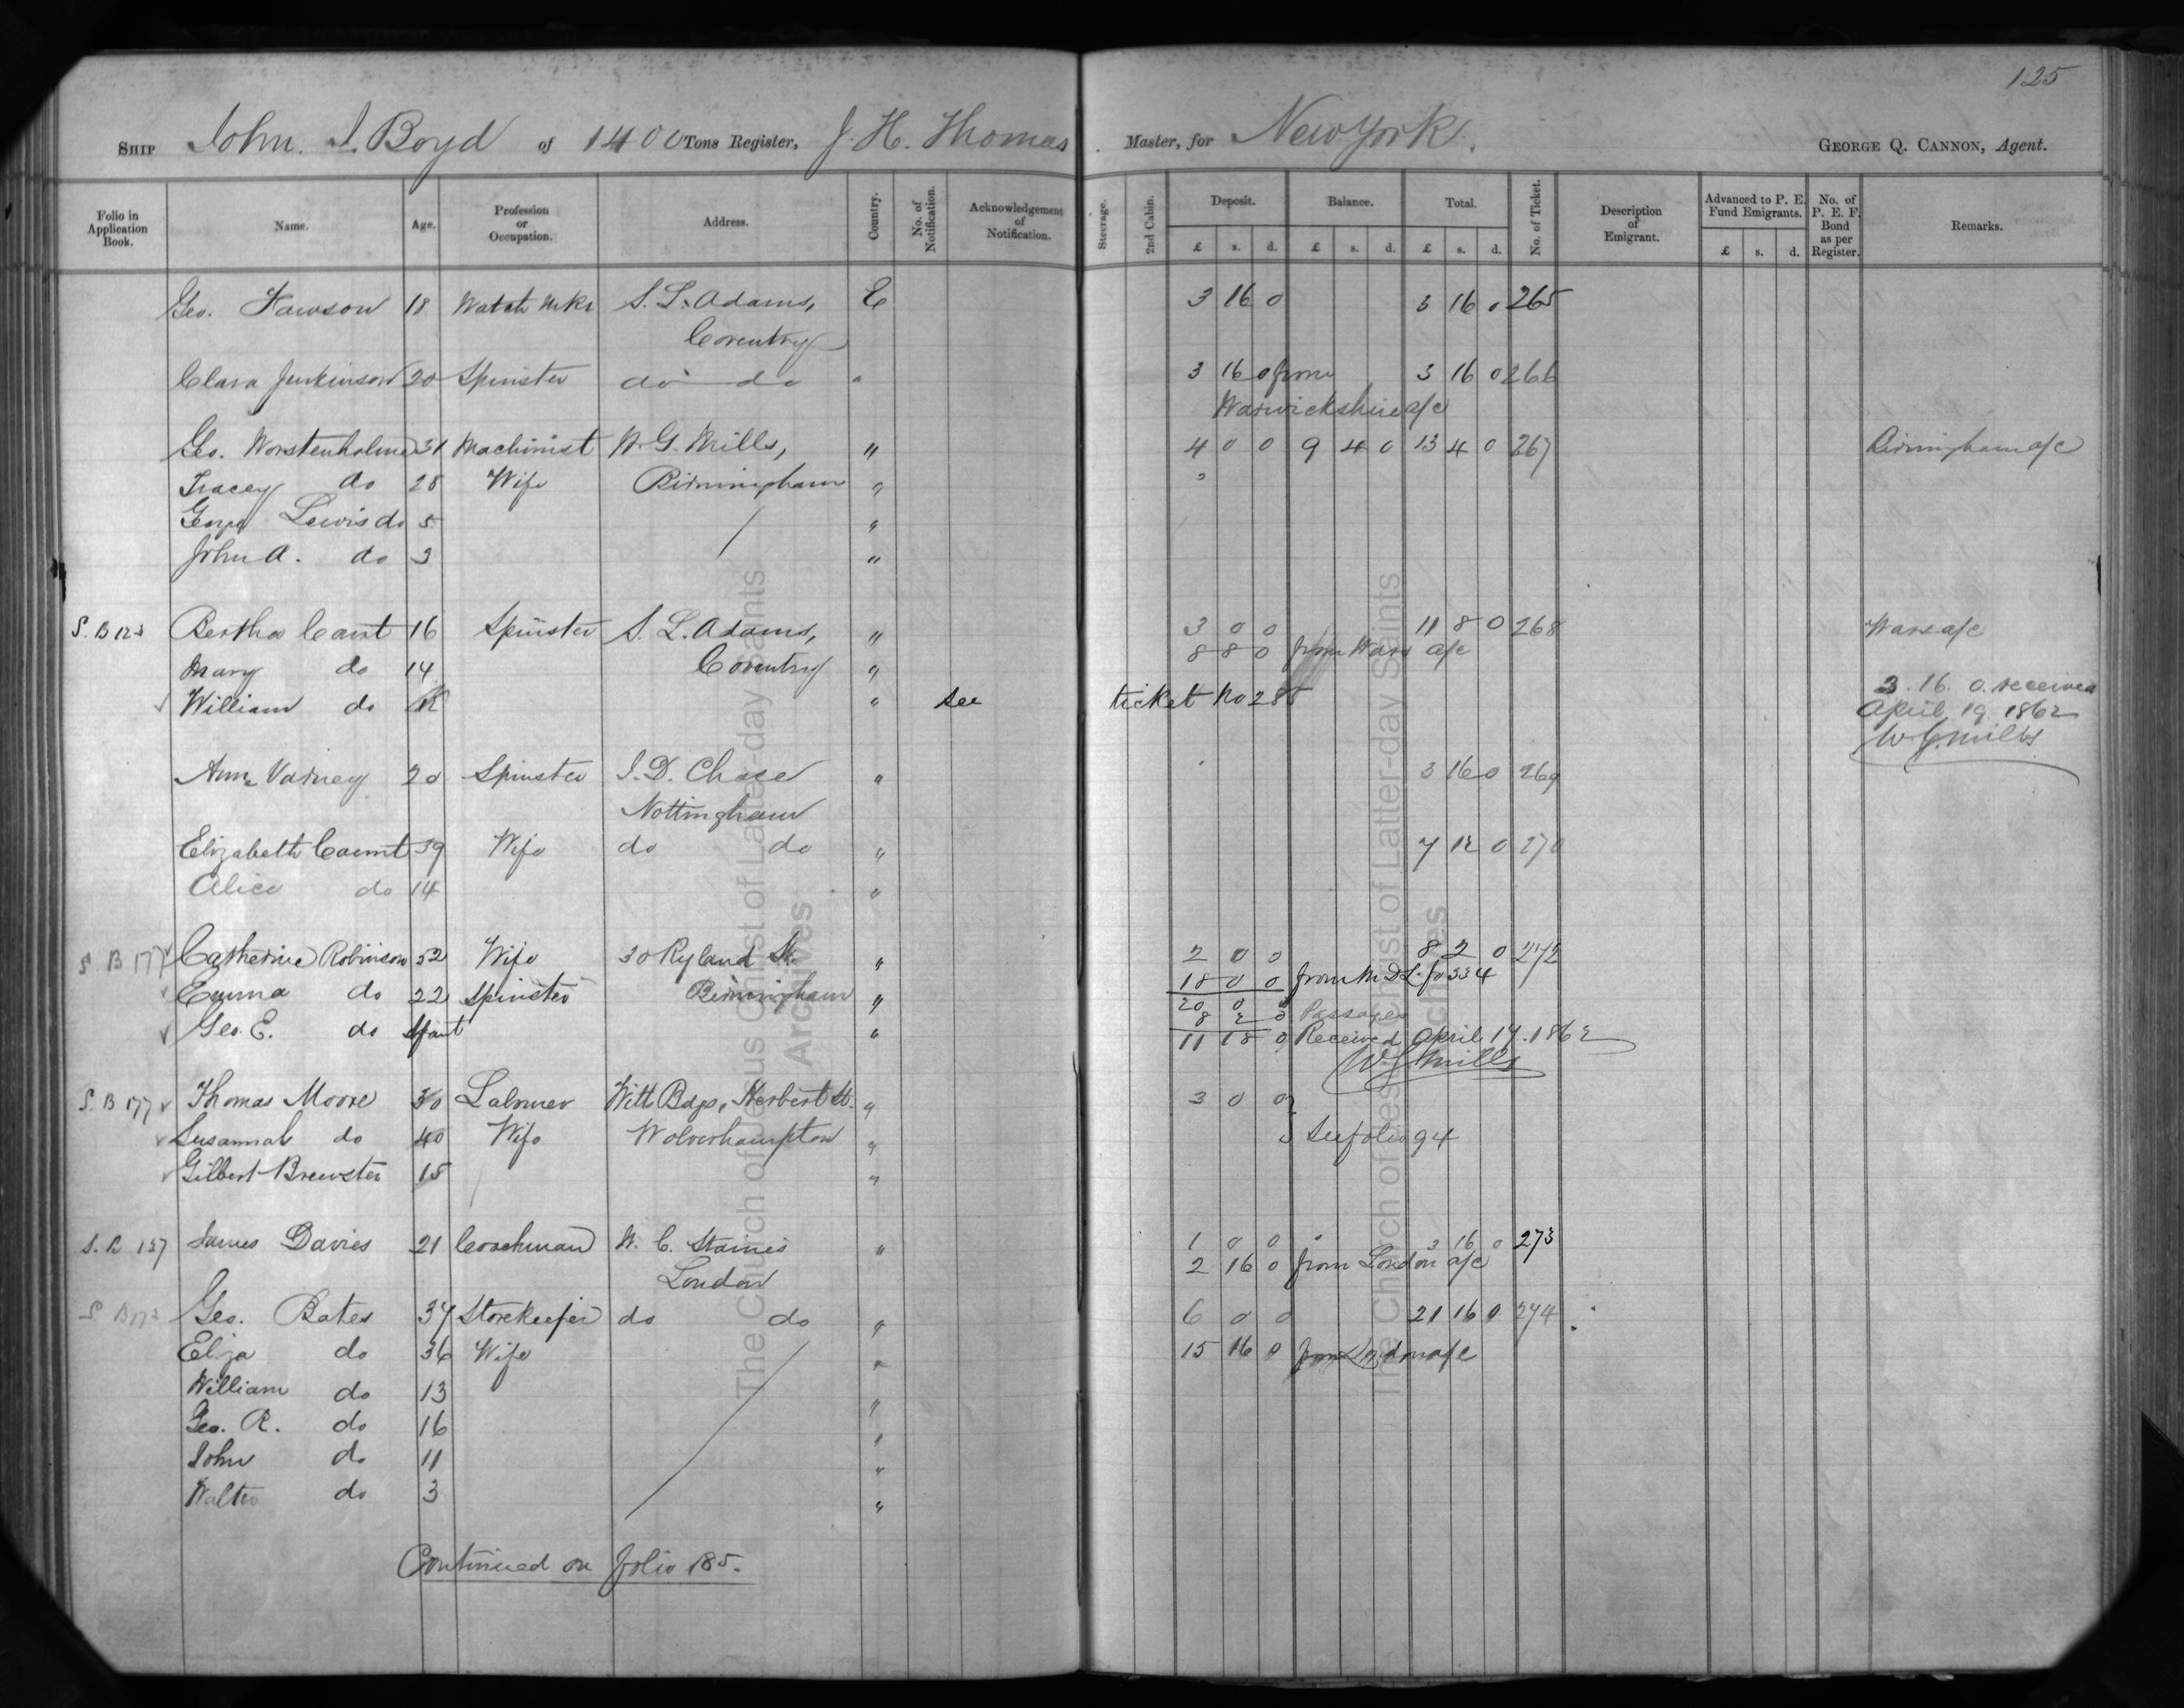 125
SHIP John J. Boyd of 1400 Tons Register, J. H. Thomas Master, for New York. GEORGE Q. CANNON, Agent.
Folio in Application Book. Name. Age. Profession or Occupation. Address. Country. No. of Notification. Acknowledgement of Notification. Steerage. 2nd Cabin. Deposit. Balance. Total. No. of Ticket. Description of Emigrant. Advanced to P. E. Fund Emigrants. No. of P. E. F. Bond as per Register. Remarks.
£ s. d. £ s. d. £ s. d. £ s. d.
Geo. Fawson 18 Watch Mkr S. L. Adams, E 3 16 0 3 16 0 265
Coventry
Clara Jenkinson 20 Spinster do do " 3 16 0 from 3 16 0 266
Warwickshire a/c
Geo. Worstenholme 31 Machinist W. G. Mills, " 4 0 0 9 4 0 13 4 0 267 Birmingham a/c
Tracey do 28 Wife Birmingham "
George Lewis do 5 "
John A. do 3 "
S. B 123 Bertha Cant 16 Spinster S. L. Adams, " 3 0 0 11 8 0 268 Warw a/c
Mary do 14 Coventry " 8 8 0 from Warw a/c
William do " see ticket No 285 3. 16. 0. received
April 19 1862
W G. Mills
Ann Varney 20 Spinster J. D. Chase " 3 16 0 269
Nottingham
Elizabeth Caunt 39 Wife do do " 7 12 0 270
Alice do 14 "
S B 177 Catherine Robinson 52 Wife 30 Ryland St. " 2 0 0 8 2 0 272
Emma do 22 Spinster Birmingham " 18 0 0 from M D L. fo 334
20 0 0
Geo. E. do Infant " 8 2 0 Passages
11 18 0 Received April 17. 1862
W G Mills
S. B 177 Thomas Moore 30 Labourer Witt Bdgs, Herbert St. " 3 0 0
Susannah do 40 Wife Wolverhampton " See folio 94
Gilbert Brewster 15 "
S. B 157 James Davies 21 Coachman W. C. Staines " 1 0 0 3 16 0 273
London 2 16 0 from London a/c
S B 172 Geo. Bates 37 Storekeeper do do " 6 0 0 21 16 0 274
Eliza do 36 Wife " 15 16 0 from London a/c
William do 13 "
Geo. R. do 16 "
John do 11 "
Walter do 3 "
Continued on folio 185.
The Church of Jesus Christ of Latter-day Saints
Archives
The Church of Jesus Christ of Latter-day Saints
Archives